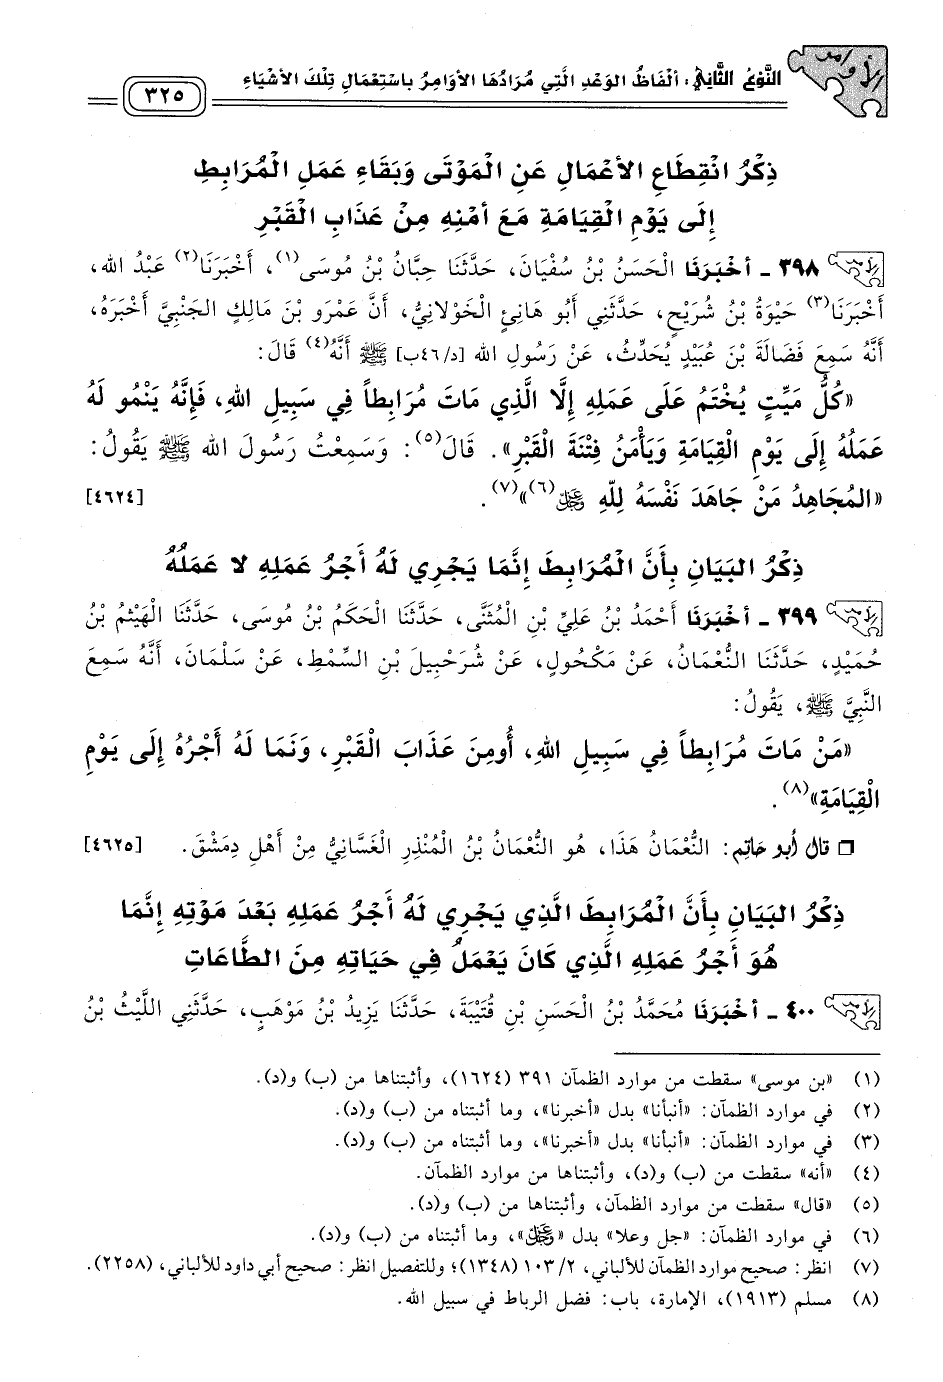 الأوامر
النَّوْعُ الثَّانِي: أَلْفَاظُ الوَعْدِ الَّتِي مُرَادُهَا الأَوَامِرُ بِاسْتِعْمَالِ تِلْكَ الأَشْيَاءِ
٣٢٥
ذِكْرُ انْقِطَاعِ الأَعْمَالِ عَنِ الْمَوْتَى وَبَقَاءِ عَمَلِ الْمُرَابِطِ
إِلَى يَوْمِ الْقِيَامَةِ مَعَ أَمْنِهِ مِنْ عَذَابِ الْقَبْرِ
٣٩٨ - أَخْبَرَنَا الْحَسَنُ بْنُ سُفْيَانَ، حَدَّثَنَا حِبَّانُ بْنُ مُوسَى(١)، أَخْبَرَنَا(٢) عَبْدُ اللهِ،
أَخْبَرَنَا(٣) حَيْوَةُ بْنُ شُرَيْحٍ، حَدَّثَنِي أَبُو هَانِئٍ الْخَوْلَانِيُّ، أَنَّ عَمْرَو بْنَ مَالِكٍ الجَنْبِيَّ أَخْبَرَهُ،
أَنَّهُ سَمِعَ فَضَالَةَ بْنَ عُبَيْدٍ يُحَدِّثُ، عَنْ رَسُولِ اللهِ [د/٤٦ب] ﷺ أَنَّهُ(٤) قَالَ:
«كُلُّ مَيِّتٍ يُخْتَمُ عَلَى عَمَلِهِ إِلَّا الَّذِي مَاتَ مُرَابِطاً فِي سَبِيلِ اللهِ، فَإِنَّهُ يَنْمُو لَهُ
عَمَلُهُ إِلَى يَوْمِ الْقِيَامَةِ وَيَأْمَنُ فِتْنَةَ الْقَبْرِ». قَالَ(٥): وَسَمِعْتُ رَسُولَ اللهِ ﷺ يَقُولُ:
«المُجَاهِدُ مَنْ جَاهَدَ نَفْسَهُ لِلَّهِ عَزَّ وَجَلَّ(٦)»(٧). [٤٦٢٤]
ذِكْرُ البَيَانِ بِأَنَّ الْمُرَابِطَ إِنَّمَا يَجْرِي لَهُ أَجْرُ عَمَلِهِ لا عَمَلُهُ
٣٩٩ - أَخْبَرَنَا أَحْمَدُ بْنُ عَلِيِّ بْنِ الْمُثَنَّى، حَدَّثَنَا الْحَكَمُ بْنُ مُوسَى، حَدَّثَنَا الْهَيْثَمُ بْنُ
حُمَيْدٍ، حَدَّثَنَا النُّعْمَانُ، عَنْ مَكْحُولٍ، عَنْ شُرَحْبِيلَ بْنِ السِّمْطِ، عَنْ سَلْمَانَ، أَنَّهُ سَمِعَ
النَّبِيَّ ﷺ، يَقُولُ:
«مَنْ مَاتَ مُرَابِطاً فِي سَبِيلِ اللهِ، أُومِنَ عَذَابَ الْقَبْرِ، وَنَمَا لَهُ أَجْرُهُ إِلَى يَوْمِ
الْقِيَامَةِ»(٨).
❑ قال أبو حَاتِم: النُّعْمَانُ هَذَا، هُوَ النُّعْمَانُ بْنُ الْمُنْذِرِ الْغَسَّانِيُّ مِنْ أَهْلِ دِمَشْقَ. [٤٦٢٥]
ذِكْرُ البَيَانِ بِأَنَّ الْمُرَابِطَ الَّذِي يَجْرِي لَهُ أَجْرُ عَمَلِهِ بَعْدَ مَوْتِهِ إِنَّمَا
هُوَ أَجْرُ عَمَلِهِ الَّذِي كَانَ يَعْمَلُ فِي حَيَاتِهِ مِنَ الطَّاعَاتِ
٤٠٠ - أَخْبَرَنَا مُحَمَّدُ بْنُ الْحَسَنِ بْنِ قُتَيْبَةَ، حَدَّثَنَا يَزِيدُ بْنُ مَوْهَبٍ، حَدَّثَنِي اللَّيْثُ بْنُ
(١) «بن موسى» سقطت من موارد الظمآن ٣٩١ (١٦٢٤)، وأثبتناها من (ب) و(د).
(٢) في موارد الظمآن: «أنبأنا» بدل «أخبرنا»، وما أثبتناه من (ب) و(د).
(٣) في موارد الظمآن: «أنبأنا» بدل «أخبرنا»، وما أثبتناه من (ب) و(د).
(٤) «أنه» سقطت من (ب) و(د)، وأثبتناها من موارد الظمآن.
(٥) «قال» سقطت من موارد الظمآن، وأثبتناها من (ب) و(د).
(٦) في موارد الظمآن: «جل وعلا» بدل «عَزَّ وَجَلَّ»، وما أثبتناه من (ب) و(د).
(٧) انظر: صحيح موارد الظمآن للألباني، ١٠٣/٢ (١٣٤٨)؛ وللتفصيل انظر: صحيح أبي داود للألباني، (٢٢٥٨).
(٨) مسلم (١٩١٣)، الإمارة، باب: فضل الرباط في سبيل الله.